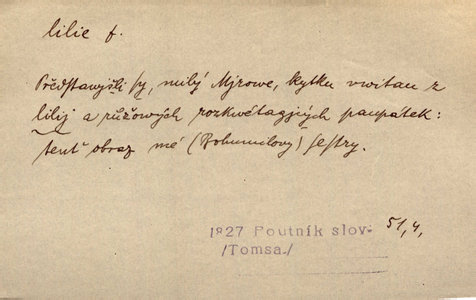 lilie f.
Představjšli sy, milý Mjrowe, kytku vwitau z
lilij a růžowých rozkwětagjcých paupátek:
tenť obraz mé (Bohumilovy) sestry.
1827 Poutník slov-
/Tomsa./
51,4,